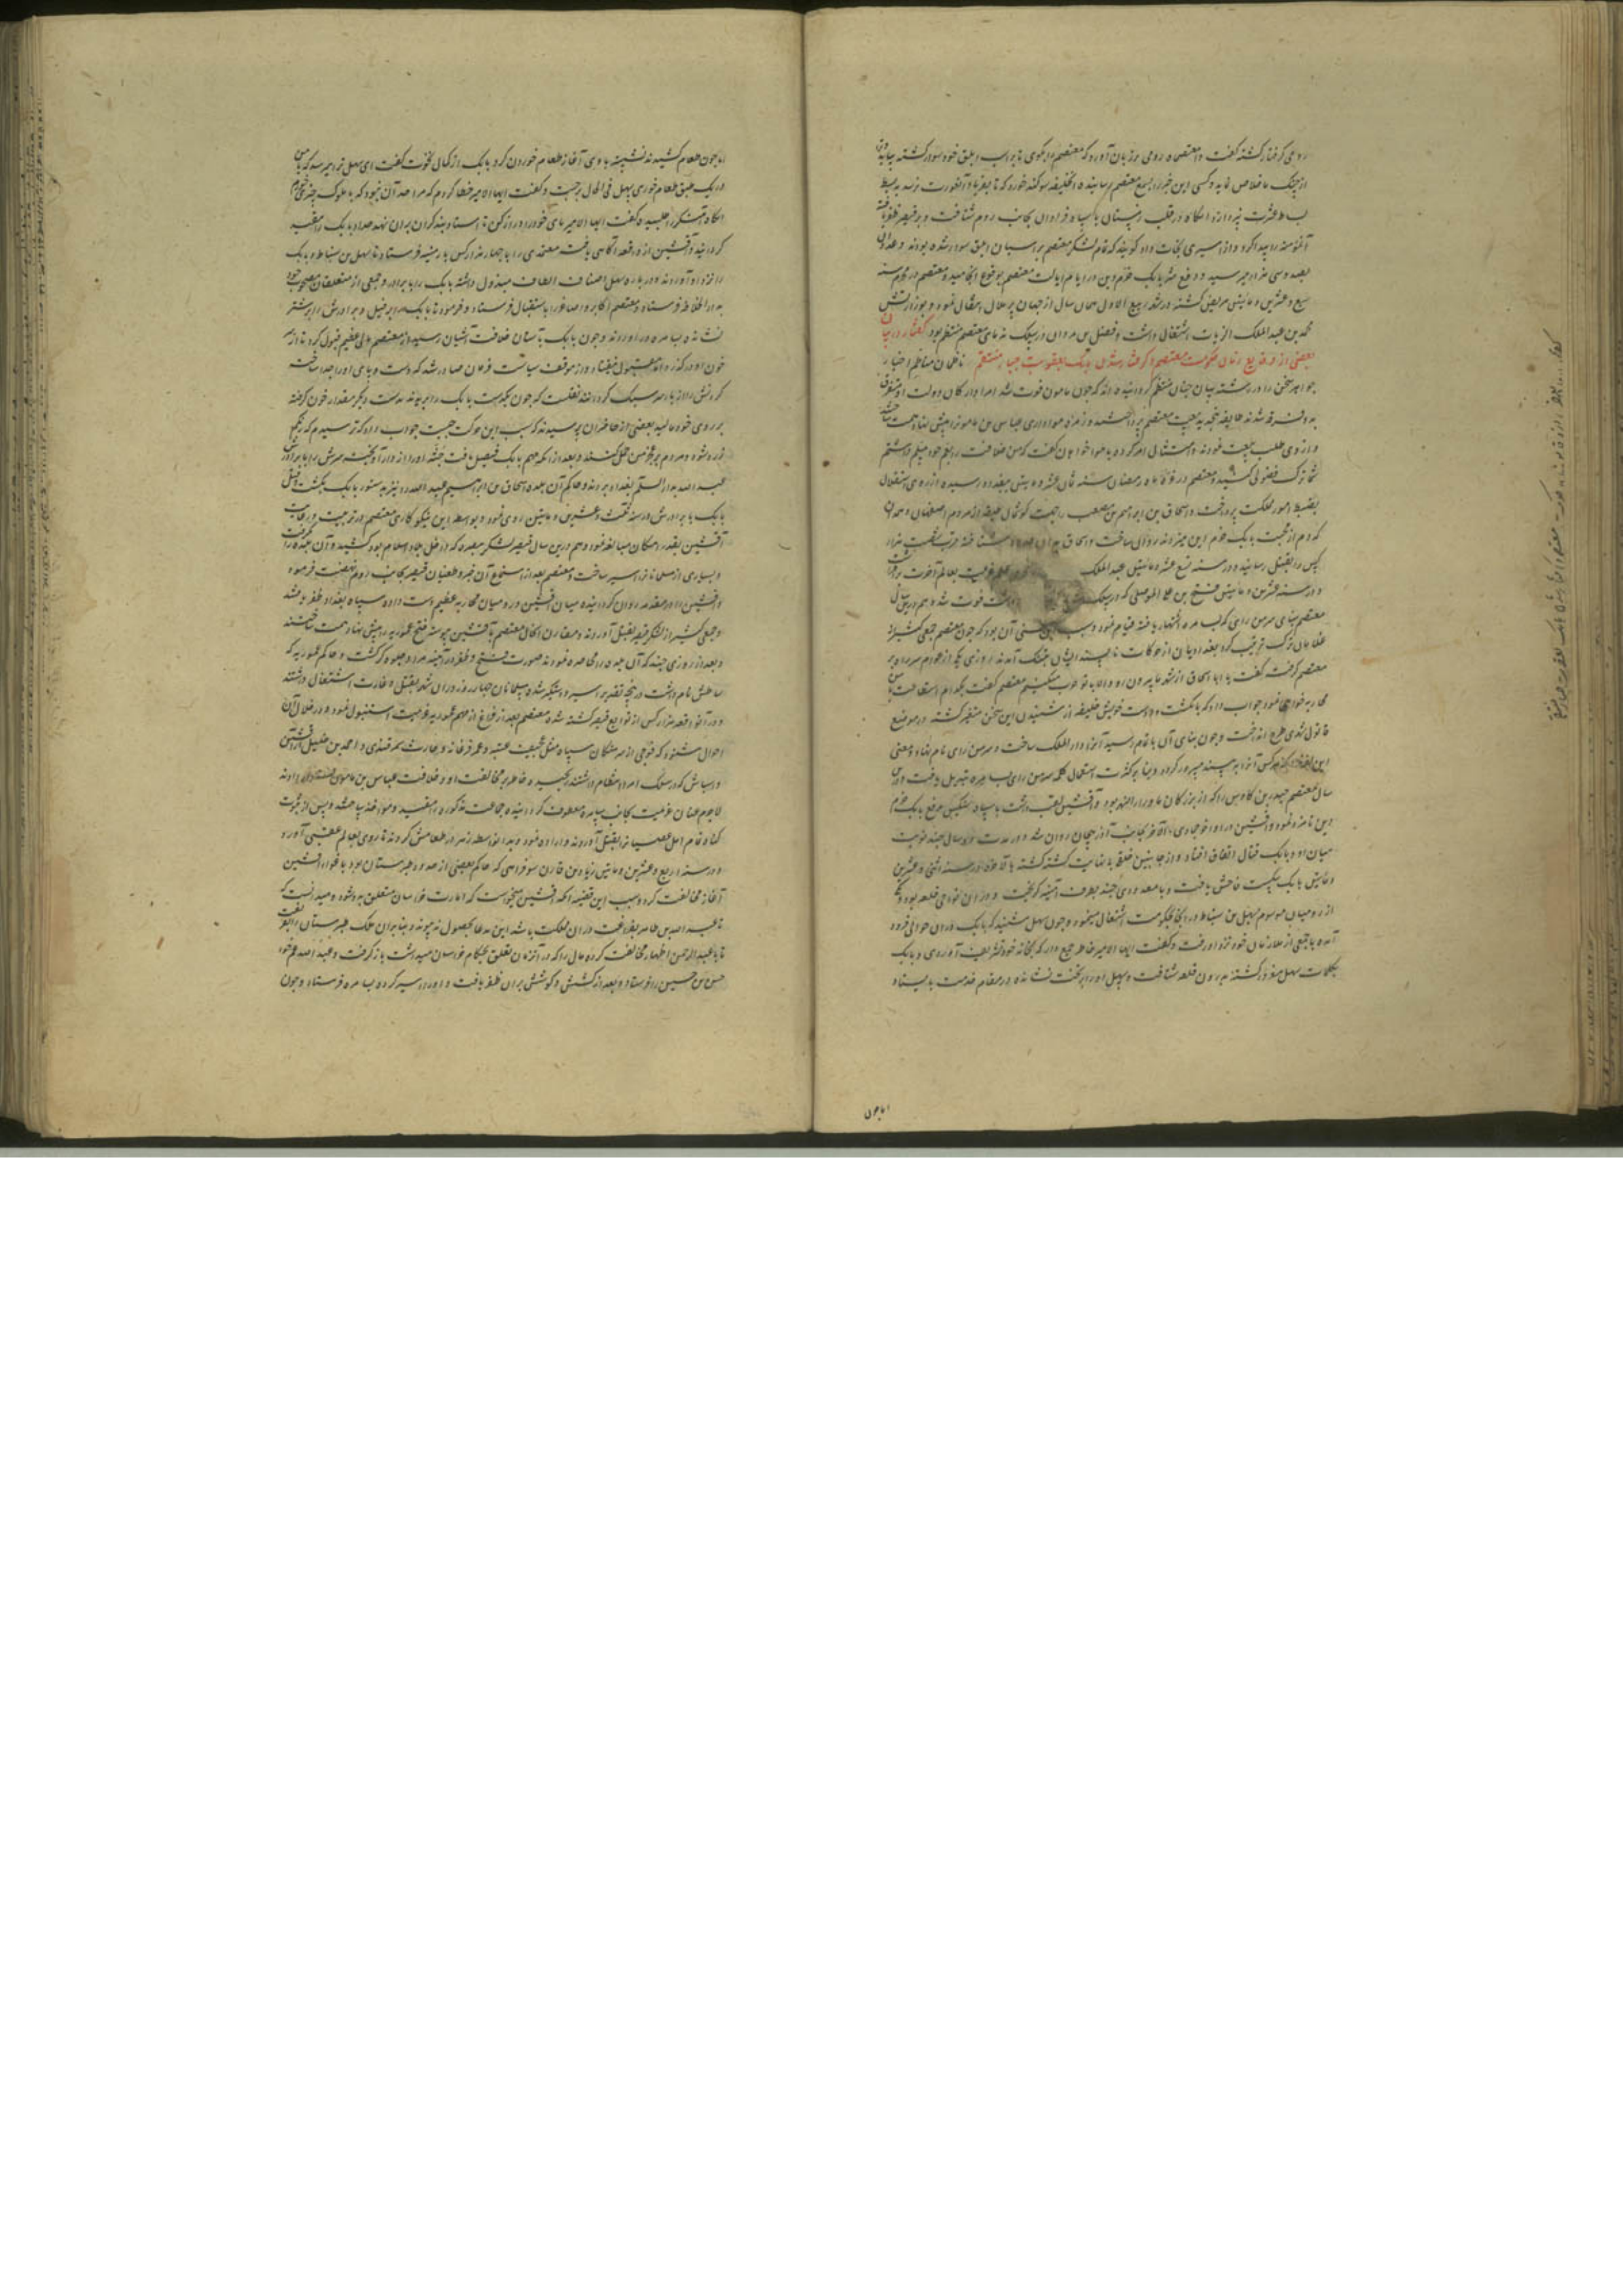 رومی گرفتار گشته گفت وا معتصماه رومی بر زبان آورد که معتصم را بگوی تا بر اسب ابلق خود سوار گشته بیاید و ترا
از چنگ ما خلاص نماید و کسی این خبر را بسمع معتصم رسانیده خلیفه سوکند خورد که تا بفریاد آنعورت نرسد به بسط
بساط عشرت نپردازد آنکاه در قلب زمستان با سپاه فراوان بجانب روم شتافت و بر قیصر ظفر یافته
آنمؤمنه را پیدا کرد و از اسیری نجات داد گویند که تمام لشکر معتصم بر اسبان ابلق سوار شده بودند و عدد آن
بصد و سی هزار میرسید و دفع شر بابک خرم دین در ایام ایالت معتصم بوقوع انجامید و معتصم در محرم سنه
سبع و عشرین و مأتین مریض گشته در شهر ربیع الاول همان سال از جهان پر ملال انتقال نمود و بوزارتش
محمد بن عبد الملک الزیات اشتغال داشت و فضل بن مروان در سلک ندمای معتصم منتظم بود گفتار در بیان
بعضی از وقایع زمان حکومت معتصم و گرفتار شدن بابک بعقوبت جبار منتقم ناظمان مناظم اخبار
جواهر سخن را در رشته بیان چنان منتظم گردانیده اند که چون مامون فوت شد امرا و ارکان دولت او متفرق
بدو فرقه شدند طایفه بتجدید بیعت معتصم پرداختند و زمره هواداری عباس بن مامون پیش نهاد همت ساخته
و از وی طلب بیعت نمودند و عباس امتثال امر کرده با هواخواهان گفت که من خلافت را بعم خود مسلم داشتم
شما ترک فضولی کنید و معتصم در غره ماه رمضان سنه ثمان عشر و مأتین ببغداد رسیده از روی استقلال
بضبط امور مملکت پرداخت و اسحاق بن ابراهیم بن مصعب را بجهت گوشمال طایفه از مردم اصفهان و همدان
که دم از محبت بابک خرم دین میزدند روان ساخت و اسحاق بدان حدود شتافته قریب شصت هزار
کس را بقتل رسانید و در سنه تسع عشر و مأتین عبد الملک عزیمت بعالم آخرت برافراشت
و در سنه عشرین و مأتین فتح بن علی الموصلی که در سلک داشت فوت شد و هم درین سال
معتصم ببنای سر من رای که بسامره اشتهار یافته قیام نمود و سبب آن بود که چون معتصم جمعی کثیر از
غلامان ترک تربیت کرد بغدادیان از حرکات ناپسند ایشان بتنگ آمدند روزی یکی از عوام سر راه بر
معتصم گرفت گفت یا ابا اسحاق از شهر ما بیرون رو والا با تو حرب میکنیم معتصم گفت بکدام استطاعت با من
محاربه خواهی نمود جواب داد که بانگشت و دست خویش خلیفه از شنیدن این سخن متغیر گشته در موضع
قاطول شهری طرح انداخت و چون بنای آن باتمام رسید آنرا دار الملک ساخت و سر من رای نام نهاد و معنی
این لفظ آنکه هر کس آنرا به بیند مسرور گردد و بنا بر کثرت استعمال کلمه سر من رای بسامره تبدیل یافت و درین
سال معتصم حیدر بن کاوس را که از بزرگان ماوراء النهر بود و افشین لقب داشت با سپاه سنگین بدفع بابک خرم
دین نامزد نمود و افشین در اواخر جمادی الآخر بجانب آذربیجان روان شد و در مدت دو سال چند نوبت
میان او و بابک قتال اتفاق افتاد و از جانبین خلق بی‌نهایت کشته گشته بالاخره در سنه اثنی و عشرین
و مأتین بابک شکست فاحش یافت و با معدودی چند بطرف ارمنیه گریخت و در آن نواحی قلعه بود و یکی
از رومیان موسوم بسهل بن سنباط در آنجا بحکومت اشتغال مینمود و چون سهل شنید که بابک در آن حوالی فرود
آمده با جمعی از ملازمان خود نزد او رفت و گفت ایها الامیر خاطر جمع دار که بخانه خود تشریف آوردی و بابک
بکلمات سهل مغرور گشته بدرون قلعه شتافت و سهل او را بر تخت نشانده در مقام خدمت بایستاد
اما چون
اما چون طعام کشیدند نشسته با وی آغاز طعام خوردن کرد بابک از کمال نخوت گفت ای سهل ترا میرسد که با من
در یک طبق طعام خوری سهل فی الحال برجست و گفت ایها الامیر خطا کردم که مرا حد آن نبود که با ملوک چیزی خورم
آنکاه آهنگر را طلبیده گفت ایها الامیر پای خود را دراز کن تا استاد بند گران بر آن نهد حداد بابک را مقید
گردانید و افشین از واقعه آگاهی یافت معتمدی را با چهار هزار کس بارمنیه فرستاد تا سهل بن سنباط و بابک
را نزد او آوردند و در باره سهل اصناف الطاف مبذول داشته بابک را با برادر و جمعی از متعلقان مصحوب خود
بدار الخلافه فرستاد و معتصم اکابر و اصاغر را باستقبال فرستاد و فرمود تا بابک را بر فیل و برادرش را بر شتر
نشانده بسامره در آوردند و چون بابک بآستان خلافت آشیان رسید از معتصم مالی عظیم قبول کرد تا از سر
خون او در گذرد اما مقبول نیفتاد و از موقف سیاست فرمان صادر شد که دست و پای او را جدا ساخته
گردنش را از بار سر سبک گردانند نقلست که چون یکدست بابک را بریدند بدست دیگر مقداری خون گرفته
بر روی خود مالید بعضی از حاضران پرسیدند که سبب این حرکت چیست جواب داد که ترسیدم که رنگم
زرد شود و مردم بر جزع من حمل کنند و بعد از آنکه مهم بابک فیصل یافت جثه او را از دار آویخته سرش را با برادرش
عبد الله بدار السلام بغداد بردند و حاکم آن بلده اسحاق بن ابراهیم عبد الله را نیز بدستور بابک بکشت و قتل
بابک با برادرش در سنه ثلث و عشرین و مأتین روی نمود و بواسطه این نیکو کاری معتصم در تربیت و رعایت
افشین بقدر امکان مبالغه نمود و هم درین سال قیصر لشکر بر بلده که داخل بلاد اسلام بود کشید و آن بلده را گرفت
و بسیاری از مسلمانان اسیر ساخت و معتصم بعد از استماع آن خبر و طغیان قیصر بجانب روم نهضت فرمود
و افشین را در مقدمه روان گردانیده میان افشین و رومیان محاربه عظیم دست داده سپاه بغداد ظفر یافتند
و جمعی کثیر از لشکر قیصر بقتل آوردند و مقارن آنحال معتصم بافشین پیوسته فتح عموریه را پیش نهاد همت ساختند
و بعد از روزی چند که آن بلده را محاصره نمودند صورت فتح و ظفر در آیینه مراد جلوه گر گشت و حاکم عموریه که
باطس نام داشت در پنجه تقدیر اسیر و دستگیر شده مسلمانان چهار روز در آن شهر بقتل و غارت اشتغال داشتند
و در آنواقعه سی هزار کس از توابع قیصر کشته شده معتصم بعد از فراغ از مهم عموریه عزیمت استنبول نمود و در خلال آن
احوال شنود که فوجی از سرهنگان سپاه مثل عجیف بن عنبسه و عمر فرغانی و حارث سمرقندی و احمد بن خلیل و افشین
و اشناس که در سلک امرا انتظام داشتند بکینه او خاطر بر مخالفت او و خلافت عباس بن مامون قرار داده اند
لاجرم عنان عزیمت بجانب سامره معطوف گردانیده جماعت مذکوره را مقید و مؤاخذ ساخته و پس از ثبوت
گناه تمام اهل عصیان را بقتل آورد
و در سنه اربع و عشرین و مأتین مازیار بن قارن که حاکم بعضی از حدود طبرستان بود باغواء افشین
آغاز مخالفت کرد و سبب این قضیه آنکه افشین میخواست که امارت خراسان متعلق بدو شود و میدانست که
تا عبد الله بن طاهر بفراغت در آن مملکت باشد این مدعا بحصول نه پیوندد بنابران ملک طبرستان را بفریفت
تا با عبد الله اظهار مخالفت کرده مالی را که در آنزمان تعلق بحکام خراسان میداشت باز گرفت و عبد الله عم خود
حسن بن حسین را فرستاد و بعد از کشش و کوشش بر آن ظفر یافت و او را اسیر کرده بسامره فرستاد و چون